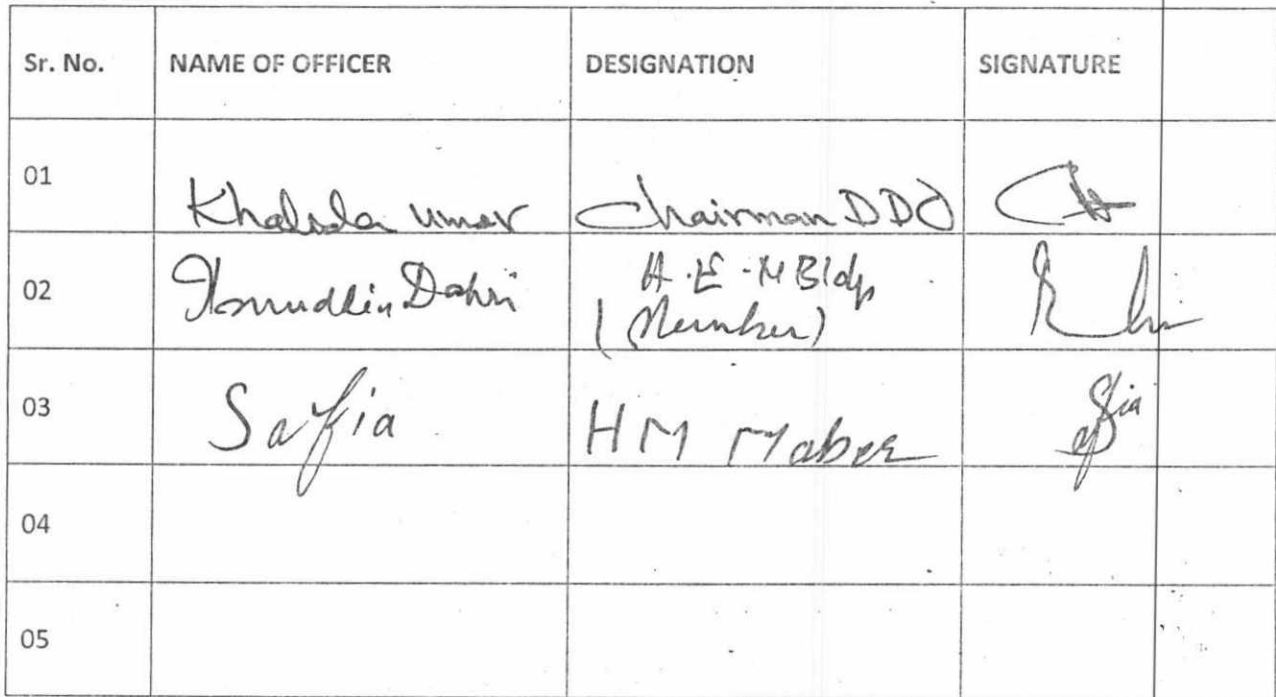 Sr. No. NAME OF OFFICER DESIGNATION SIGNATURE
01 Khalida Umar Chairman DDO
02 Dahri A.E-M Bldg
(Member)
03 Safia HM Maber Sfia
04
05